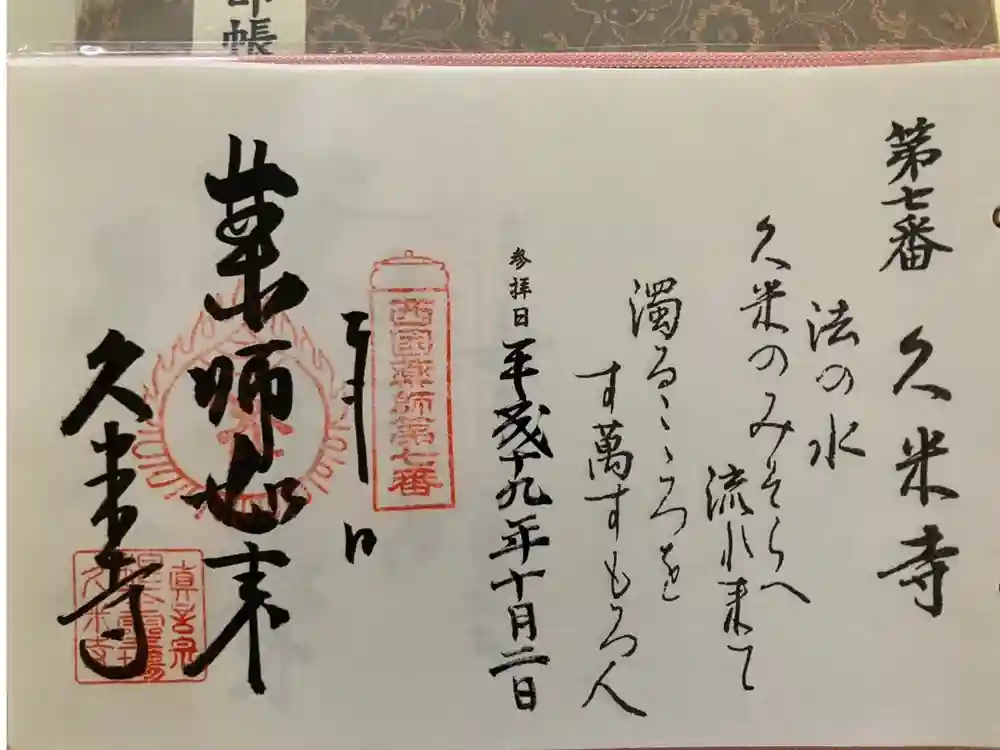 印帳
第七番 久米寺
法の水
久米のみそらへ
流れ来て
濁るこゝろを
す萬すもろ人
参拝日 平成十九年十月二日
西国薬師第七番
奉拝
日
薬師如来
久米寺
真言宗
久米寺